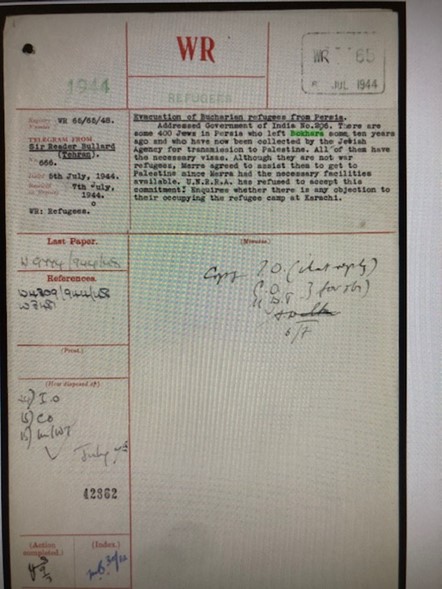 WR
WR 65
JUL 1944
1944
REFUGEES
Registry Number WR 65/65/48.
TELEGRAM FROM
Sir Reader Bullard
(Tehran).
No. 666.
Dated 5th July, 1944.
Received in Registry 7th July, 1944.
WR: Refugees.
Evacuation of Bucharian refugees from Persia.
Addressed Government of India No.206. There are
some 400 Jews in Persia who left Bokhara some ten years
ago and who have now been collected by the Jewish
Agency for transmission to Palestine. All of them have
the necessary visas. Although they are not war
refugees, Merra agreed to assist them to get to
Palestine since Merra had the necessary facilities
available. U.N.R.R.A. has refused to accept this
commitment: Enquires whether there is any objection to
their occupying the refugee camp at Karachi.
Last Paper.
(Minutes.)
References.
Copy I.O.
(Print.)
(How disposed of)
I.O
CO
July
42362
(Action completed.)
(Index.)